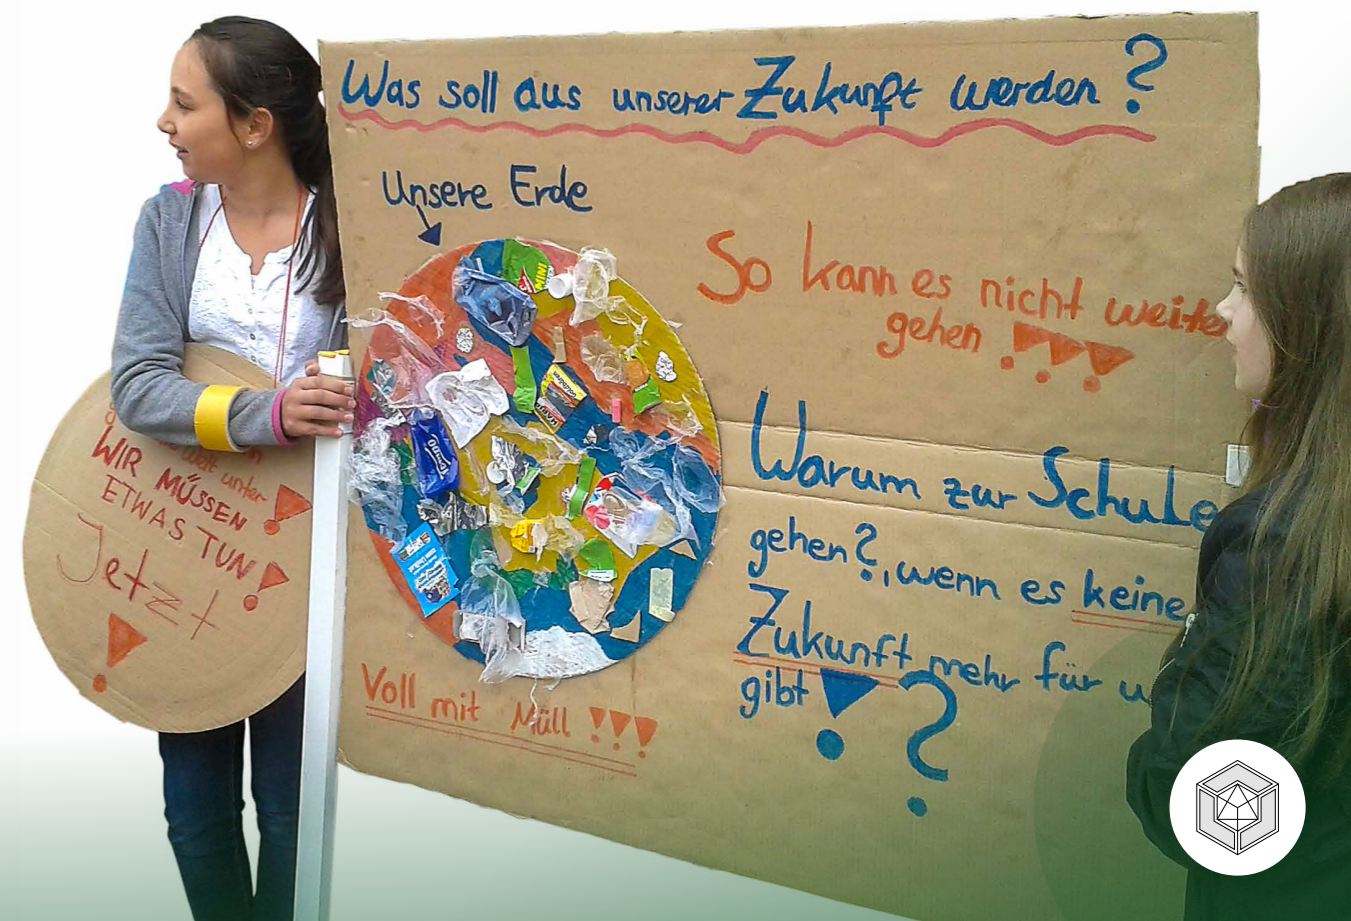 Was soll aus unserer Zukunft werden?
Unsere Erde
So kann es nicht weiter
gehen !!!
Warum zur Schule
gehen?, wenn es keine
Zukunft mehr für u
gibt !?
Voll mit Müll !!!
Welt unter !
WIR MÜSSEN
ETWAS TUN !
Jetzt
!
MINI